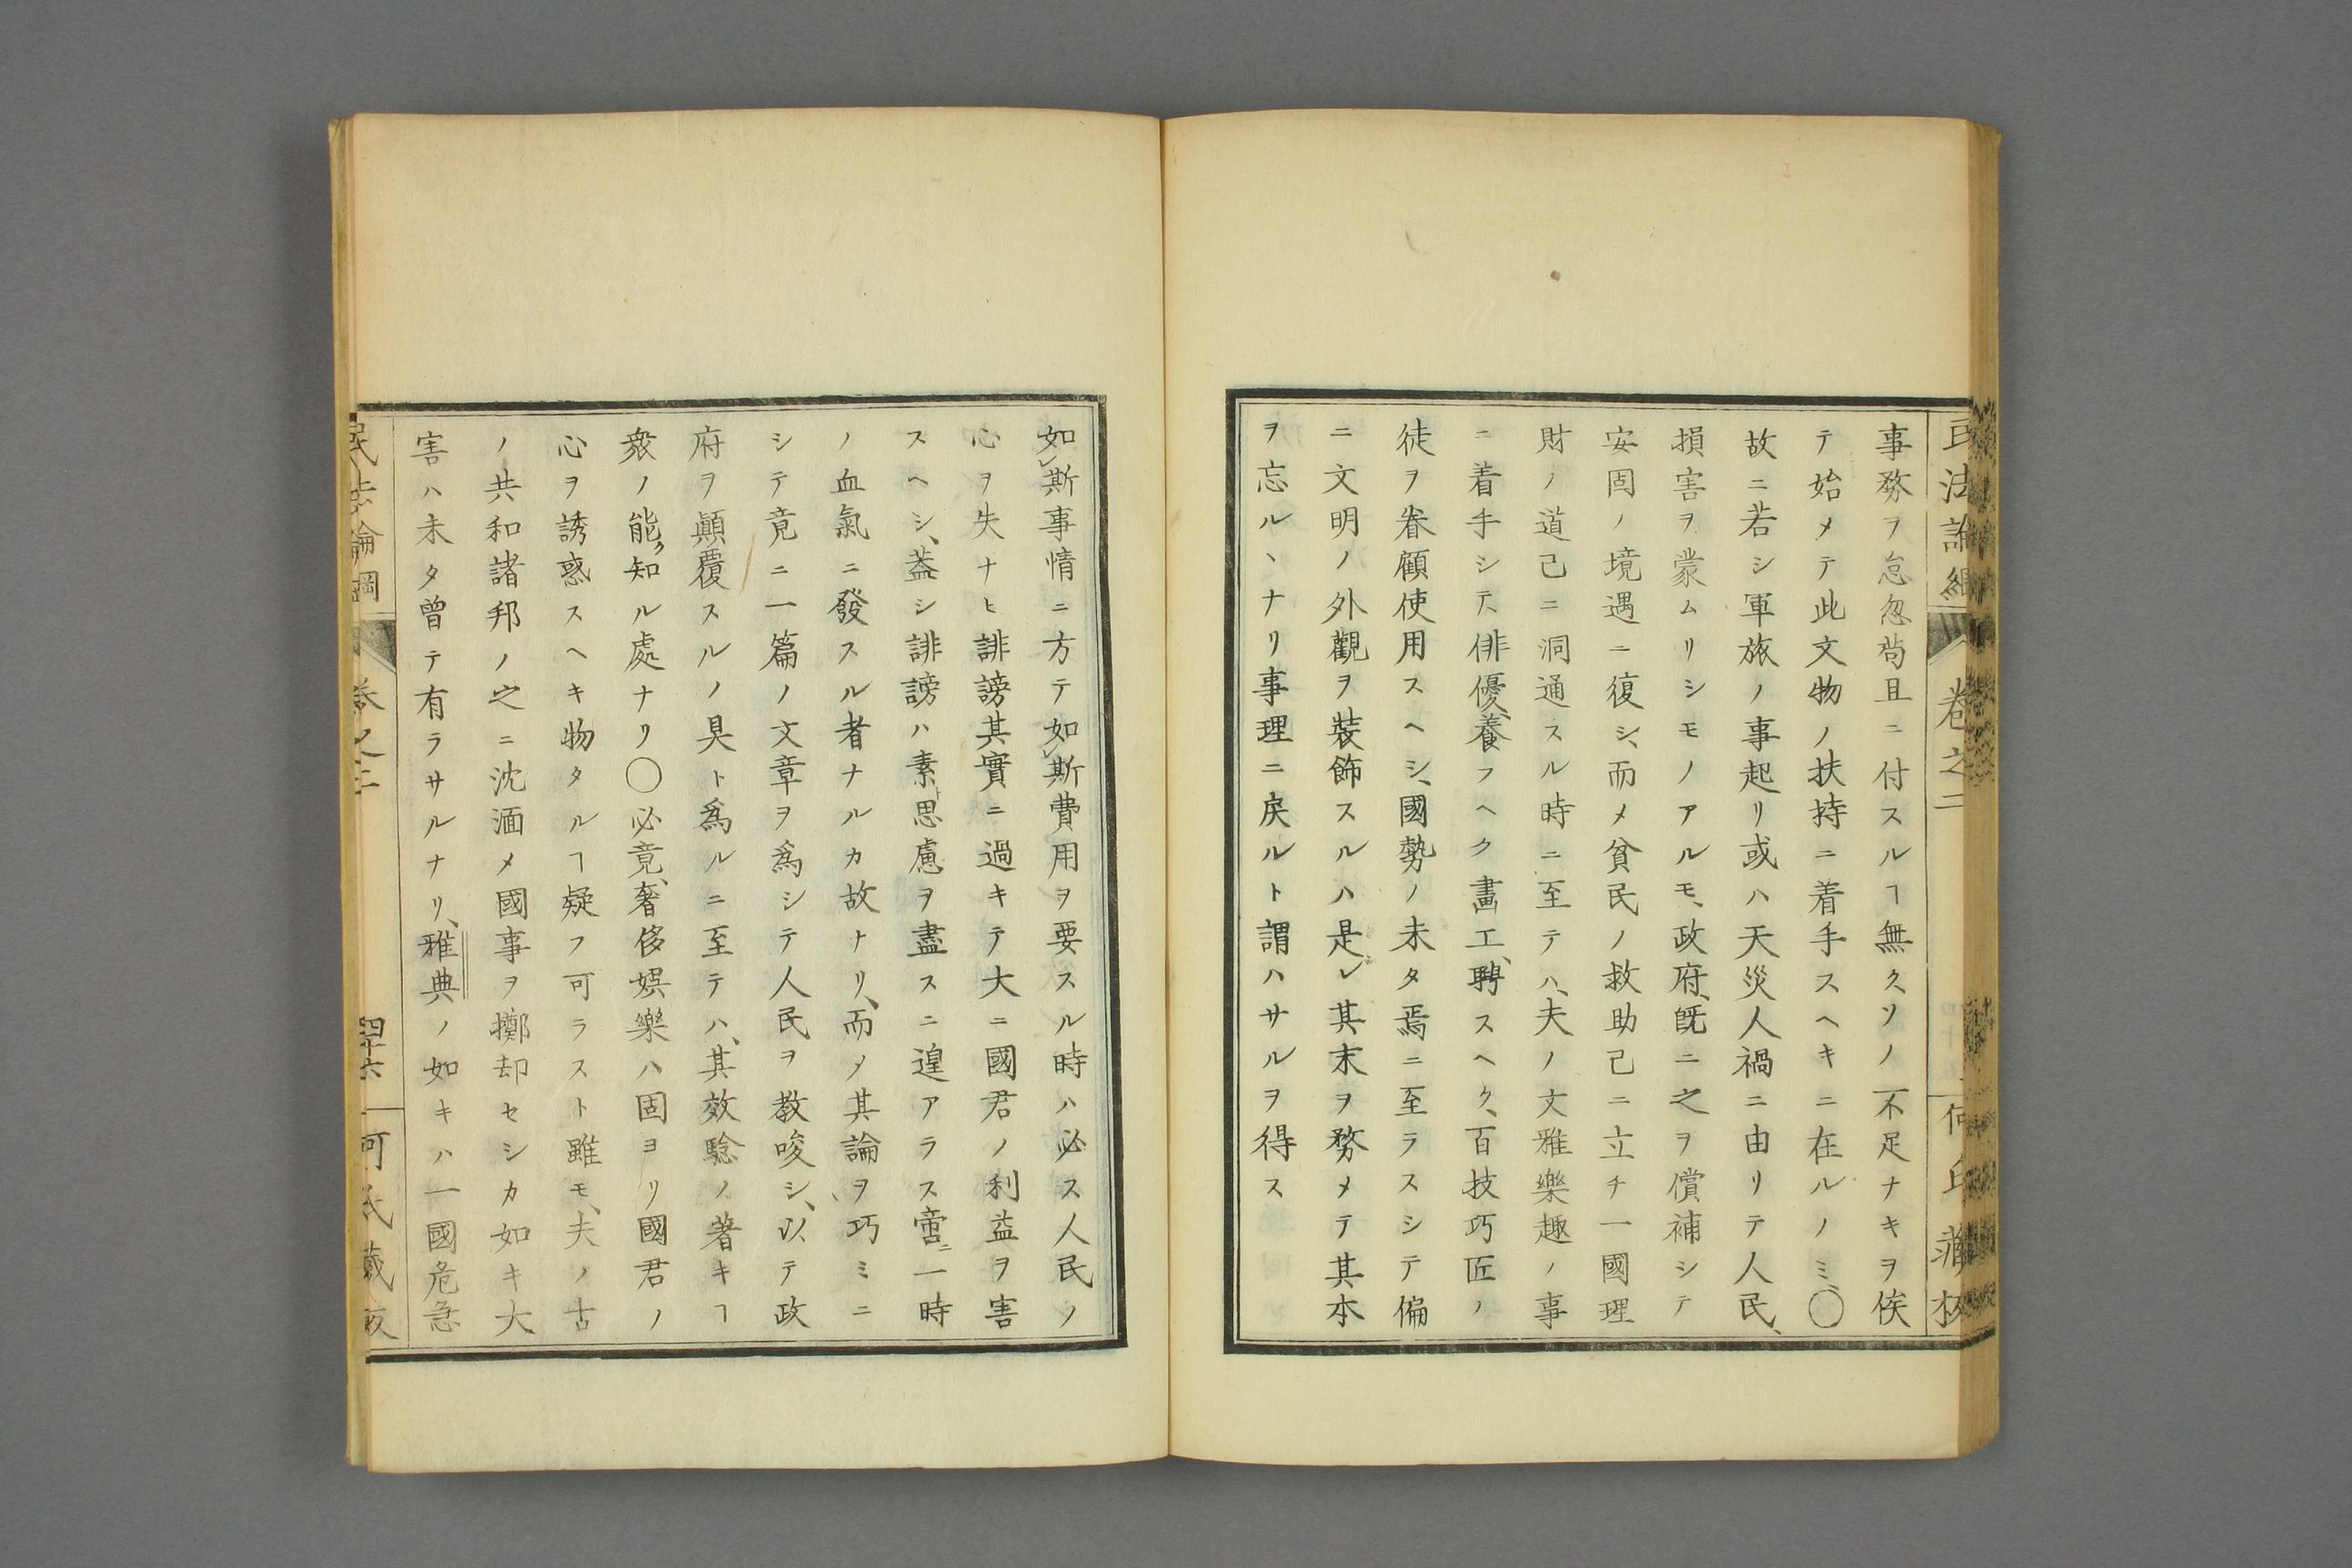 事務ヲ怠忽苟且ニ付スルヿ無ク、ソノ不足ナキヲ俟
テ始メテ此文物ノ扶持ニ着手スヘキニ在ルノミ、〇
故ニ若シ軍旅ノ事起リ或ハ天災人禍ニ由リテ人民、
損害ヲ蒙ムリシモノアルモ、政府、既ニ之ヲ償補シテ
安固ノ境遇ニ復シ、而メ貧民ノ救助己ニ立チ一國理
財ノ道己ニ洞通スル時ニ至テハ、夫ノ文雅樂趣ノ事
ニ着手シテ、俳優、養フヘク畫工、聘スヘク、百技巧匠ノ
徒ヲ眷顧使用スヘシ、國勢ノ未タ焉ニ至ラスシテ偏
ニ文明ノ外觀ヲ裝飾スルハ是レ其末ヲ務メテ其本
ヲ忘ルヽナリ事理ニ戻ルト謂ハサルヲ得ス
民法論綱 卷之二 何氏藏板
如レ斯事情ニ方テ如レ斯費用ヲ要スル時ハ必ス人民ノ
心ヲ失ナヒ誹謗其實ニ過キテ大ニ國君ノ利益ヲ害
スヘシ、蓋シ誹謗ハ素ト思慮ヲ盡スニ遑アラス啻ニ一時
ノ血氣ニ發スル者ナルカ故ナリ、而メ其論ヲ巧ミニ
シテ竟ニ一篇ノ文章ヲ爲シテ人民ヲ教唆シ、以テ政
府ヲ顚覆スルノ具ト爲ルニ至テハ、其效驗ノ著キヿ
衆ノ能ク知ル處ナリ〇必竟、奢侈娯樂ハ固ヨリ國君ノ
心ヲ誘惑スヘキ物タルヿ疑フ可ラスト雖モ、夫ノ古
ノ共和諸邦ノ之ニ沈湎メ國事ヲ擲却セシカ如キ大
害ハ未タ曾テ有ラサルナリ、雅典ノ如キハ一國危急
民法論綱 卷之二 四十六 何氏藏板